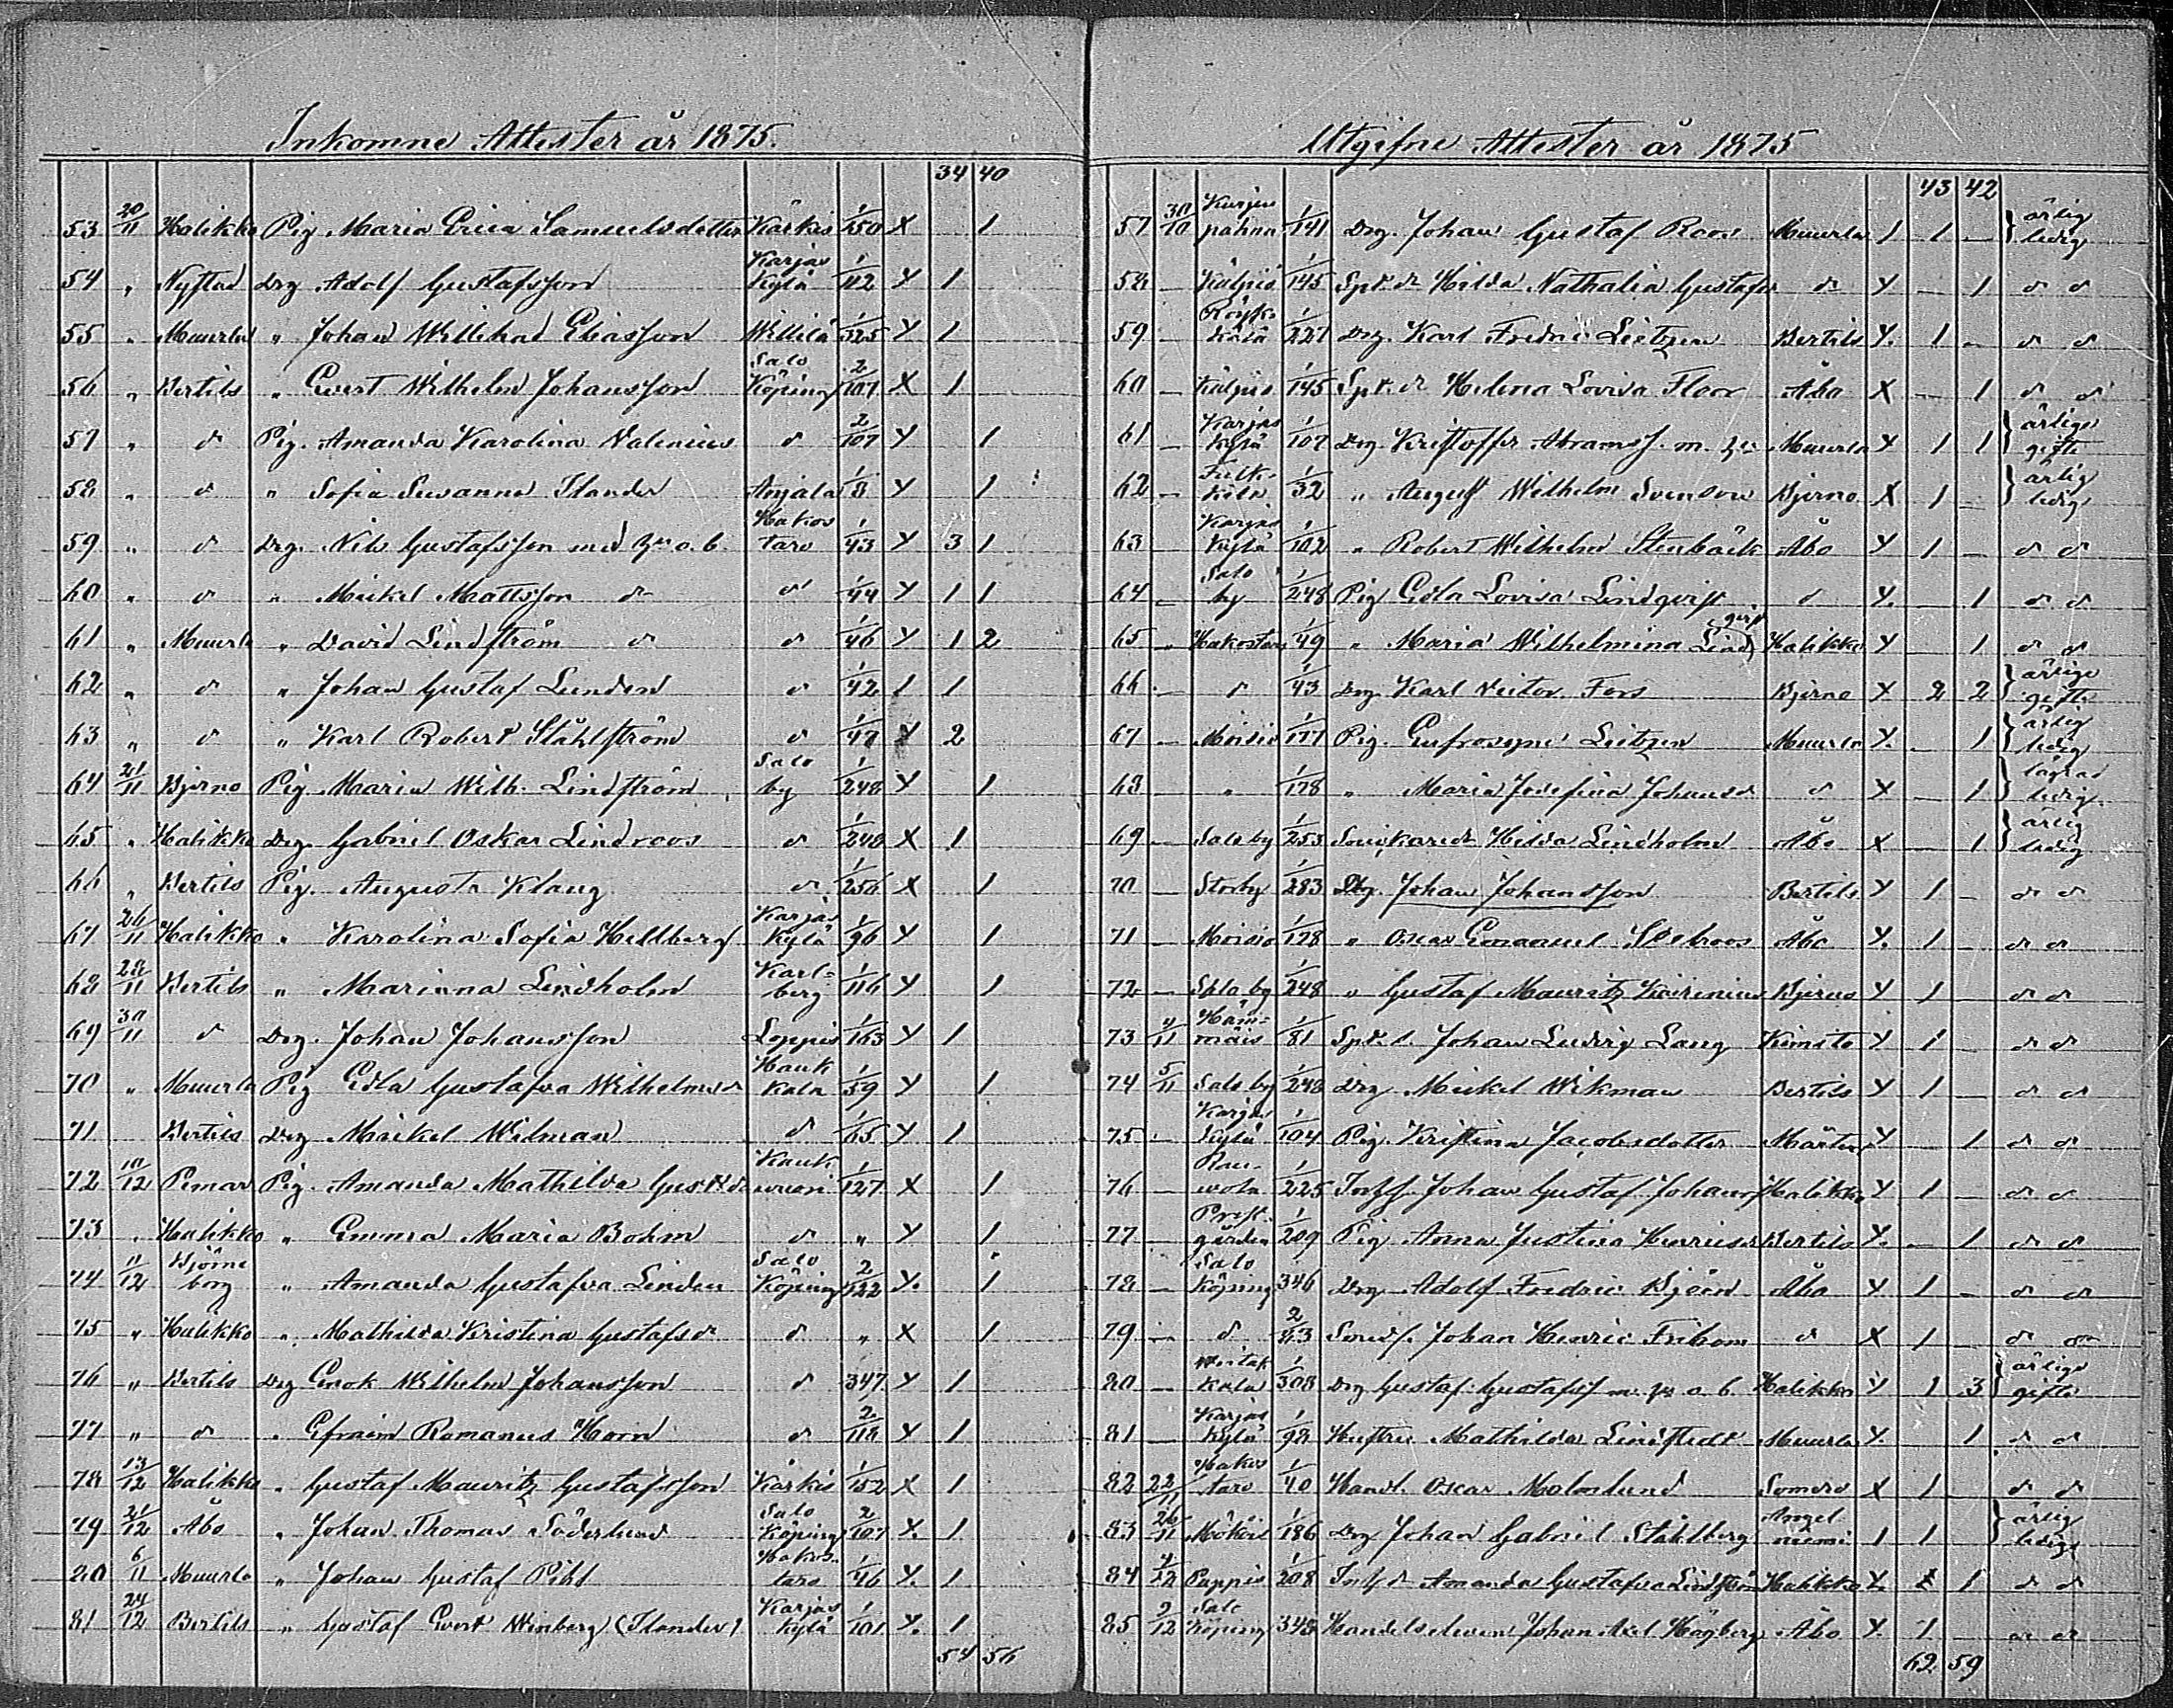 Inkomne Attester år 1875.
34 40
53 20/11 Halikko Pig Maria Erica Samuelsdotter Kärkis 1/150 X 1
54 " Nystad Drg Adolf Gustafsson Karjas Kylä 1/112 Y 1
55 " Muurla " Johan Willehad Eliasson Willilä 1/325 Y 1
56 " Bertils " Evert Wilhelm Johansson Salo Köping 2/107 X 1
57 " d Pig. Amanda Karolina Valenius d 2/107 Y 1
58 " d " Sofia Susanna Ilander Anjala 1/8 Y 1
59 " d Drg. Nils Gustafsson med h:u o. b. Hakostaro 1/43 Y 3 1
60 " d " Mickel Mattsson d d 1/44 Y 1 1
61 " Muurla " David Lindström d d 1/46 Y 1 2
62 " d " Johan Gustaf Lunden d 1/42 1 1
63 " d " Karl Robert Ståhlström d 1/47 Y 2
64 21/11 Bjerno Pig Maria Wilh. Lindström Salo by 1/248 Y 1
65 " Halikko Drg Gabriel Oskar Lindroos d 1/248 X 1
66 " Bertils Pig. Augusta Klang d 1/256 X 1
67 26/11 Halikko " Karolina Sofia Hellberg Karjas Kylä 1/96 Y 1
68 28/11 Bertils " Marianna Lindholm Karlberg 1/116 Y 1
69 30/11 d Drg. Johan Johansson Loppis 1/163 Y 1
70 " Muurla Pig Edla Gustafva Wilhelmsd Haukkala 1/59 Y 1
71 Bertils Drg Maikel Wilman d 1/65 Y 1
72 10/12 Pemar Pig. Amanda Mathilda Gust:d Kaukwuori 1/127 X 1
73 " Halikko " Emma Maria Bohm d " Y 1
74 11/12 Björneborg " Amanda Gustafva Linden Salo Köping 2/122 Y. 1
75 " Halikko " Mathilda Kristina Gustafsd d " X 1
76 " Bertils Drg Enok Wilhelm Johansson d 347 Y 1
77 " d " Efraim Romanus Horn d 2/118 Y 1
78 13/12 Halikko " Gustaf Mauritz Gustafsson Kärkis 1/152 X 1
79 21/12 Åbo " Johan Thomas Söderlund Salo Köping 2/107 Y. 1
80 6/11 Muurla " Johan Gustaf Pihl Hakostaro 1/46 Y. 1
81 24/12 Bertils " Gustaf Evert Winberg (Ilander) Karjas Kylä 1/101 Y. 1
54 56
Utgifne Attester år 1875
43 42
57 30/10 Kurjenpahna 1/141 Drg. Johan Gustaf Roos Muurla 1 1 – ärlig ledig
58 – Käljis 1/145 Spt. d Hilda Nathalia Gustafsd d Y – 1 d d
59 – 1/227 Drg. Karl Fredric Lietzen Bertils Y. 1 – d d
60 – Käljis 1/145 Spt. d Helena Lovisa Floor Åbo X – 1 d d
61 – Karjas Kylä 1/107 Drg. Kristoffer Abramss. m. h:u Muurla Y 1 1 ärliga gifte
62 – 1/32 " August Wilhelm Svenson Bjerno X 1 – ärlig ledig
63 – Karjas Kylä 1/102 " Robert Wilhelm Stenbäck Åbo Y 1 – d d
64 – Salo by 1/248 Pig Edla Lovisa Lindqvist d Y. – 1 d d
65 " Hakostaro 1/49 " Maria Wilhelmina Lindqvist Halikko Y 1 d d
66 – d 1/43 Drg Karl Victor Fors Bjerno X 2 2 ärlige gifte
67 – Moisio 1/177 Pig. Eufrosyne Lietzen Muurla Y. – 1 ärlig ledig
68 " 1/178 " Maria Josefina Johansd d X – 1 lägrad ledig
69 – Salo by 1/253 Snickared. Hilda Lindholm Åbo X – 1 ärlig ledig
70 – Storby 1/283 Drg. Johan Johansson Bertils Y 1 – d d
71 – Moisio 1/178 " Oscar Emanuel Sjöroos Åbo Y. 1 – d d
72 – Salo by 1/248 " Gustaf Mauritz Bjerno Y 1 – d d
73 4/11 1/81 Spt. s. Johan Ludvig Lang Kimito Y 1 d d
74 5/11 Salo by 1/248 Drg Mickel Wikman Bertils Y 1 – d d
75 – Karjas Kylä 1/104 Pig. Kristina Jacobsdotter Mårtens Y 1 d d
76 – Rauwola 1/225 Johan Gustaf Johanss Halikko Y 1 – d d
77 – Prestgården 1/209 Pig Anna Justina Henricsd Bertils Y. – 1 d d
78 – Salo Köping 346 Drg Adolf Fredric Björn Åbo Y 1 – d d
79 – d 2/83 Smeds. Johan Henric Fribom d X 1 – d d
80 – 1/308 Drg Gustaf Gustafss m. h:u o. b. Halikko Y 1 3 ärlige gifte
81 – Karjas Kylä 1/98 Hustru Mathilda Lindstedt Muurla Y. 1 d d
82 22/11 Hakostaro 1/40 Handl. Oscar Malmlund Somero X 1 – d d
83 26/11 1/186 Drg Johan Gabriel Ståhlberg Angelniemi 1 1 ärlig ledig
84 4/12 Pappis 1/208 Amanda Gustafva Lindström Halikko Y. 1 d d
85 9/12 Salo Köping 343 Handelseleven Johan Axel Högberg Åbo Y. 1 – d d
62 59